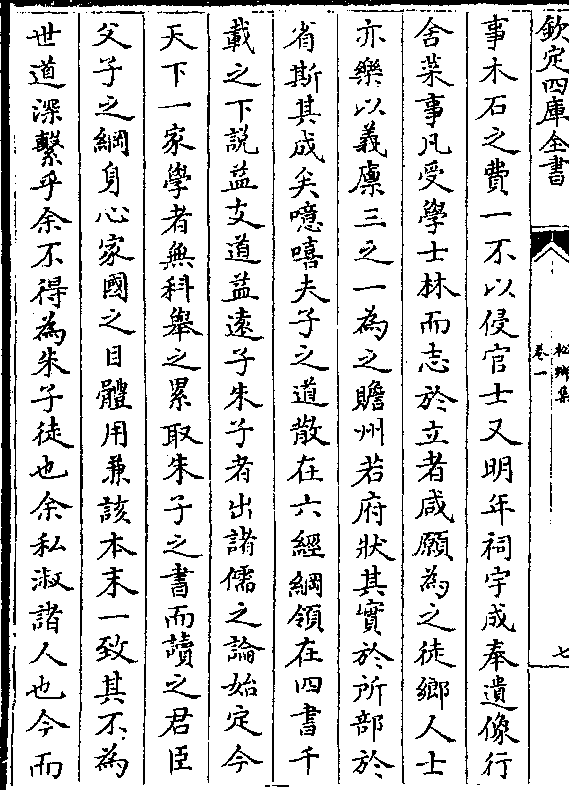 欽定四庫全書
松鄉集
卷一
七
事木石之費一不以侵官士又明年祠宇成奉遺像行
舍菜事凡受學士林而志於立者咸願為之徒鄉人士
亦樂以義廩三之一為之贍州若府狀其實於所部於
省斯其成矣噫嘻夫子之道散在六經綱領在四書千
載之下說益支道益遠子朱子者出諸儒之論始定今
天下一家學者無科舉之累取朱子之書而讀之君臣
父子之綱身心家國之目體用兼該本末一致其不為
世道深繫乎余不得為朱子徒也余私淑諸人也今而